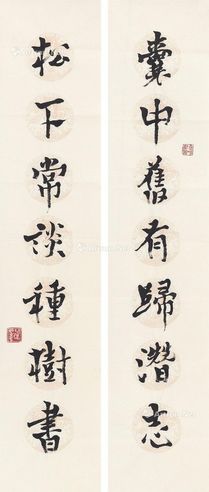 囊中舊有歸潛志
松下常談種樹書